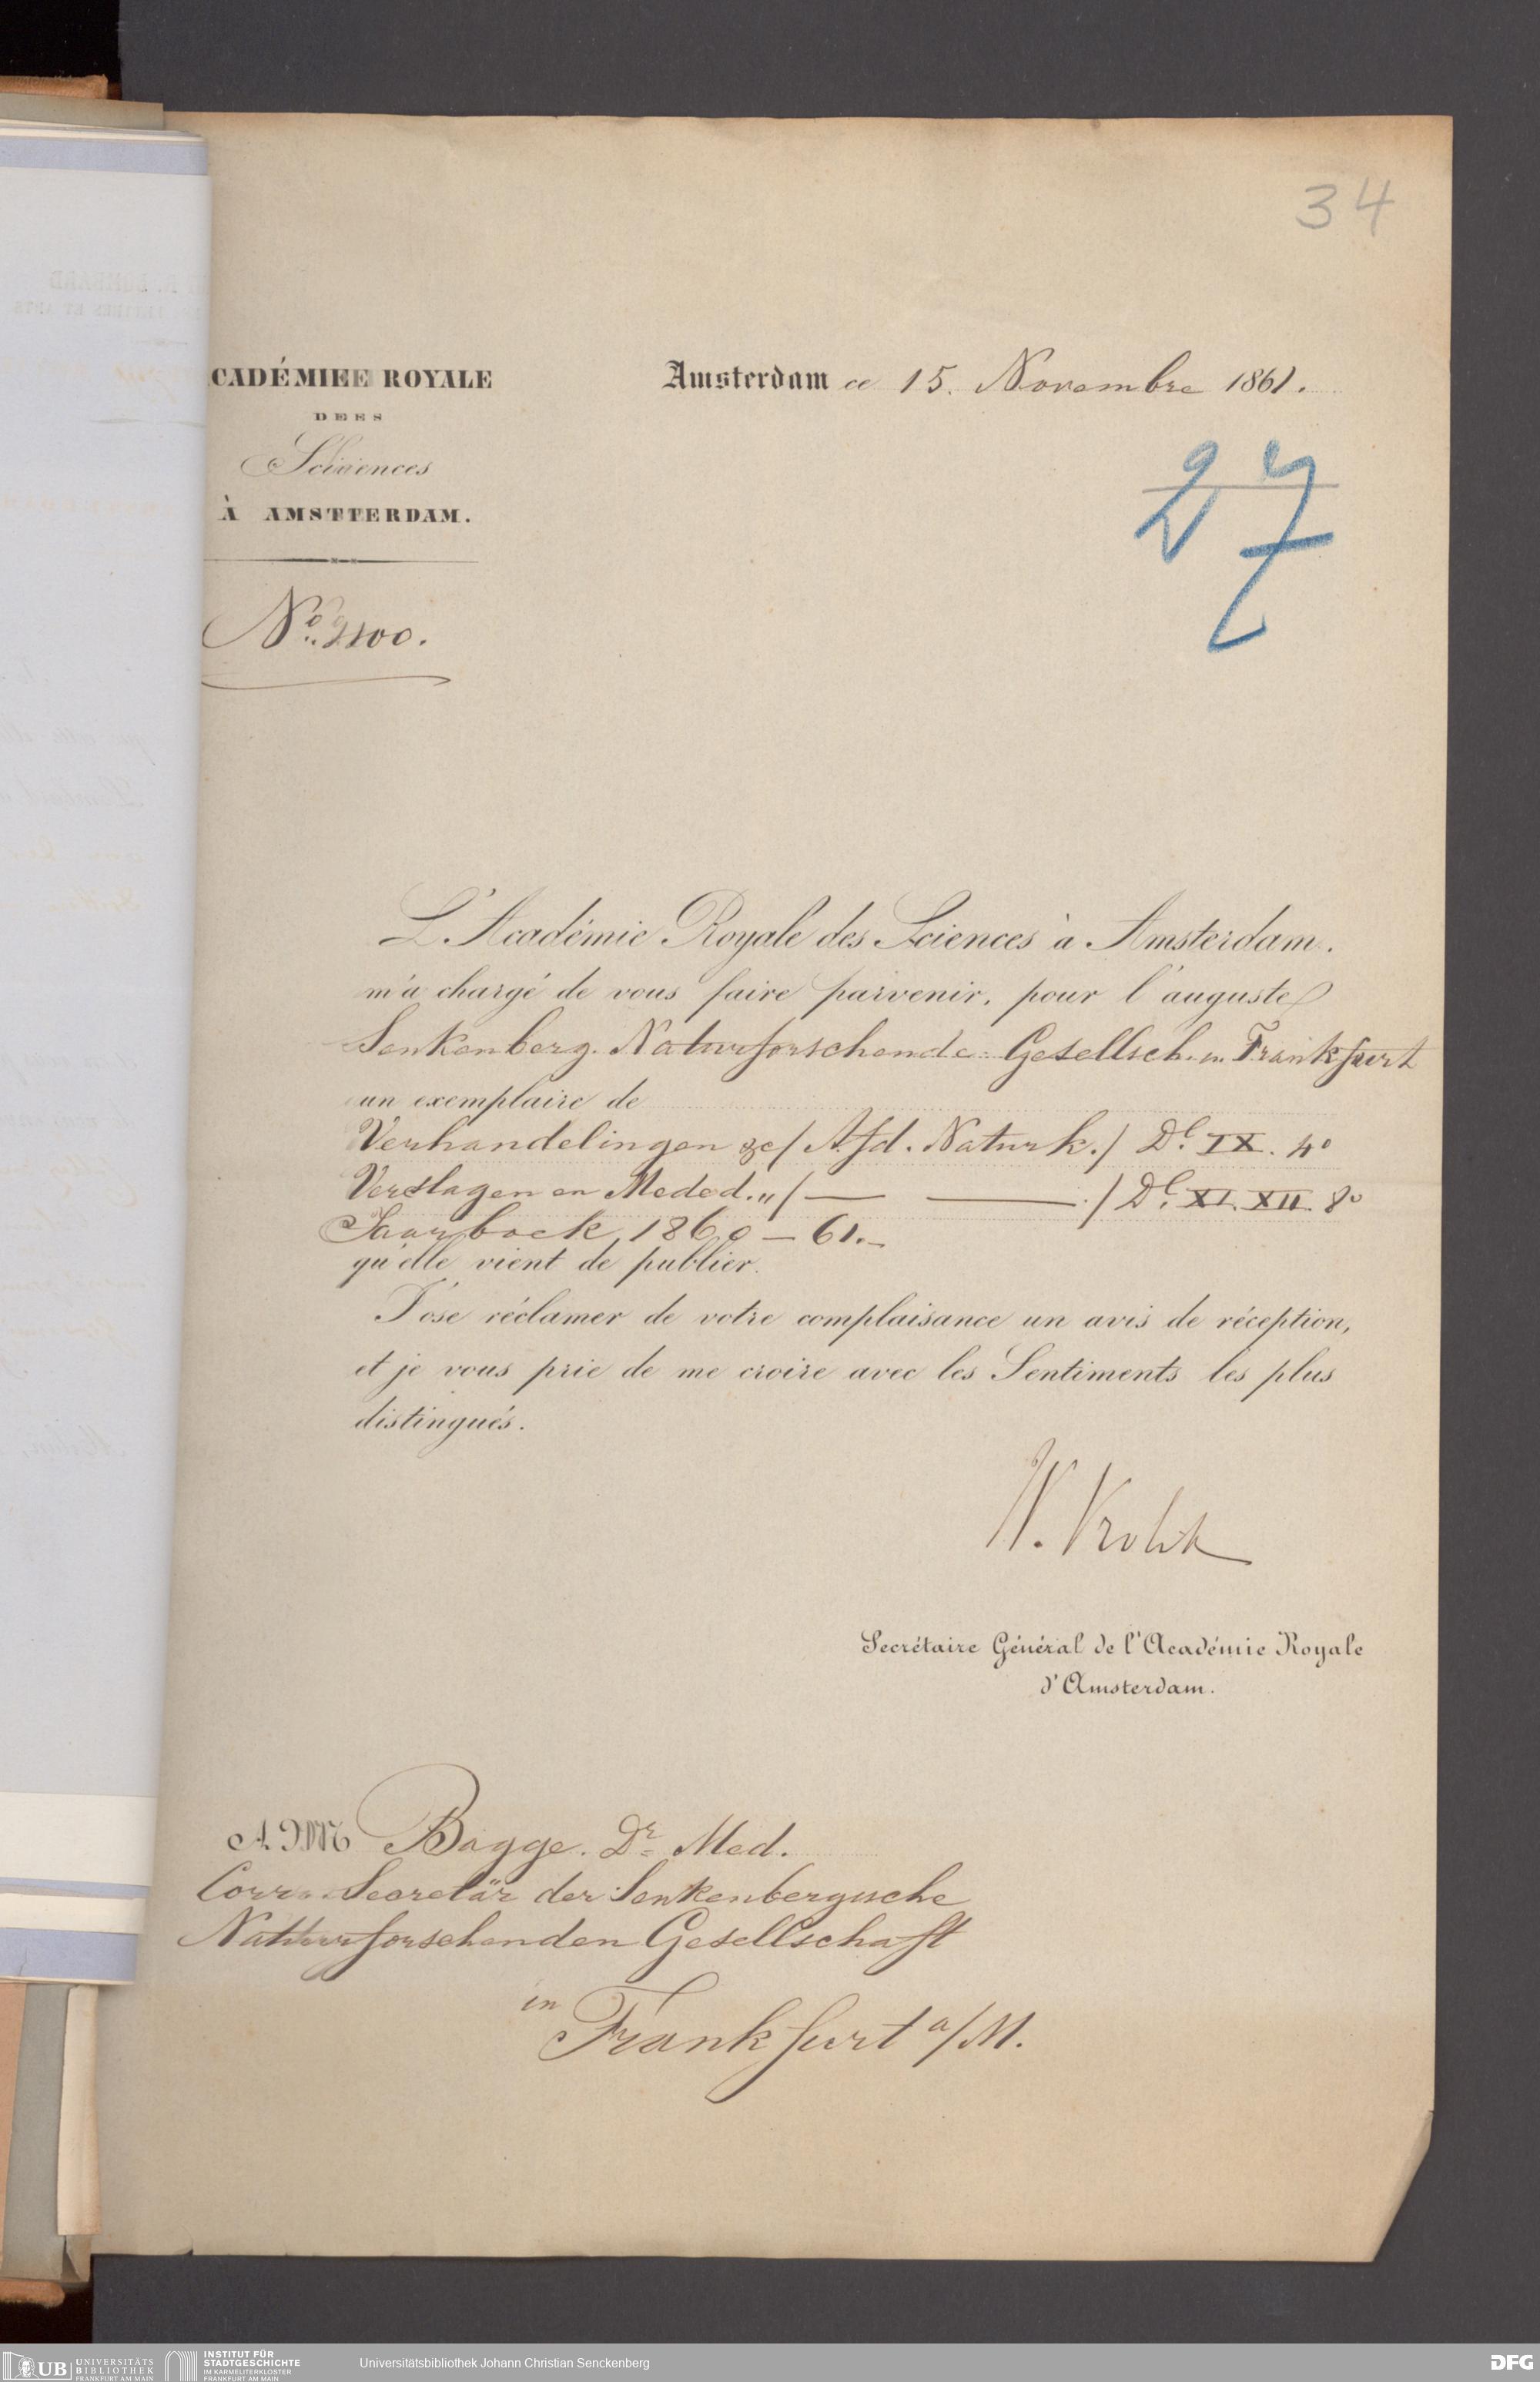 34
CADÉMIE ROYALE
DES
Sciences
À AMSTERDAM.
Amsterdam ce 15. Novembre 1861.
27
L'Académie Royale des Sciences à Amsterdam.
m'a chargé de vous faire parvenir, pour l'auguste
Senkenberg. Naturforschende Gesellsch. in Frankfurt
un exemplaire de
Verhandelingen &c / Afd. Naturk. / Dl. IX. 4o
Verslagen en Meded. „ / — — . / Dl. XI. XII. 8o
Jaarboek 1860 – 61. –
qu'elle vient de publier.
J'ose réclamer de votre complaisance un avis de réception,
et je vous prie de me croire avec les Sentiments les plus
distingués.
W. Vrolik
Secrétaire Général de l'Académie Royale
d'Amsterdam.
Bagge. Dr Med.
Corr. Secretär der Senkenbergische
Naturforschenden Gesellschaft
in
Frankfurt a/M.
UB UNIVERSITÄTS
BIBLIOTHEK
FRANKFURT AM MAIN
INSTITUT FÜR
STADTGESCHICHTE
IM KARMELITERKLOSTER
FRANKFURT AM MAIN
Universitätsbibliothek Johann Christian Senckenberg
DFG